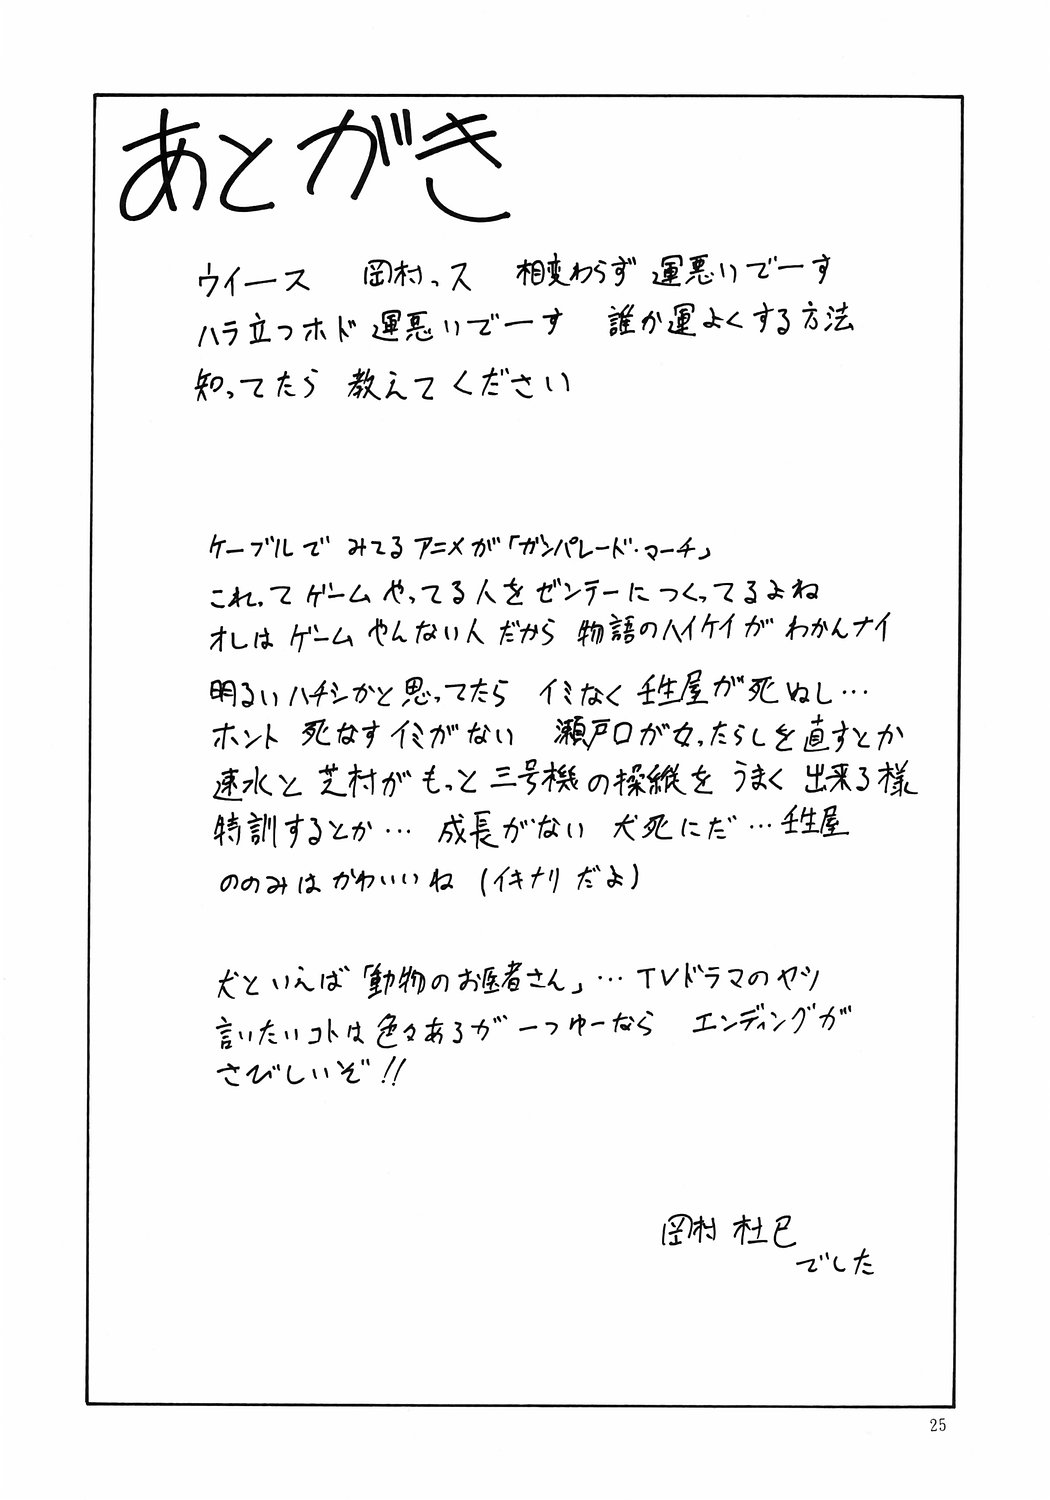 あとがき
ウイース 岡村っス 相変わらず 運悪いでーす
ハラ立つホド 運悪いでーす 誰か運よくする方法
知ってたら 教えてください
ケーブルで みてるアニメが「ガンパレード・マーチ」
これって ゲームやってる人をゼンテーにつくってるよね
オレはゲームやんない人だから 物語のハイケイがわかんナイ
明るいハナシかと思ってたら イミなく 壬生屋が死ぬし…
ホント 死なすイミがない 瀬戸口が女ったらしを直すとか
速水と 芝村がもっと三号機の操縦を うまく出来る様
特訓するとか… 成長がない 犬死にだ…壬生屋
ののみはかわいいね (イキナリだよ)
犬といえば「動物のお医者さん」…TVドラマのヤツ
言いたいコトは色々あるが一つゆーなら エンディングが
さびしいぞ!!
岡村 杜巳
でした
25